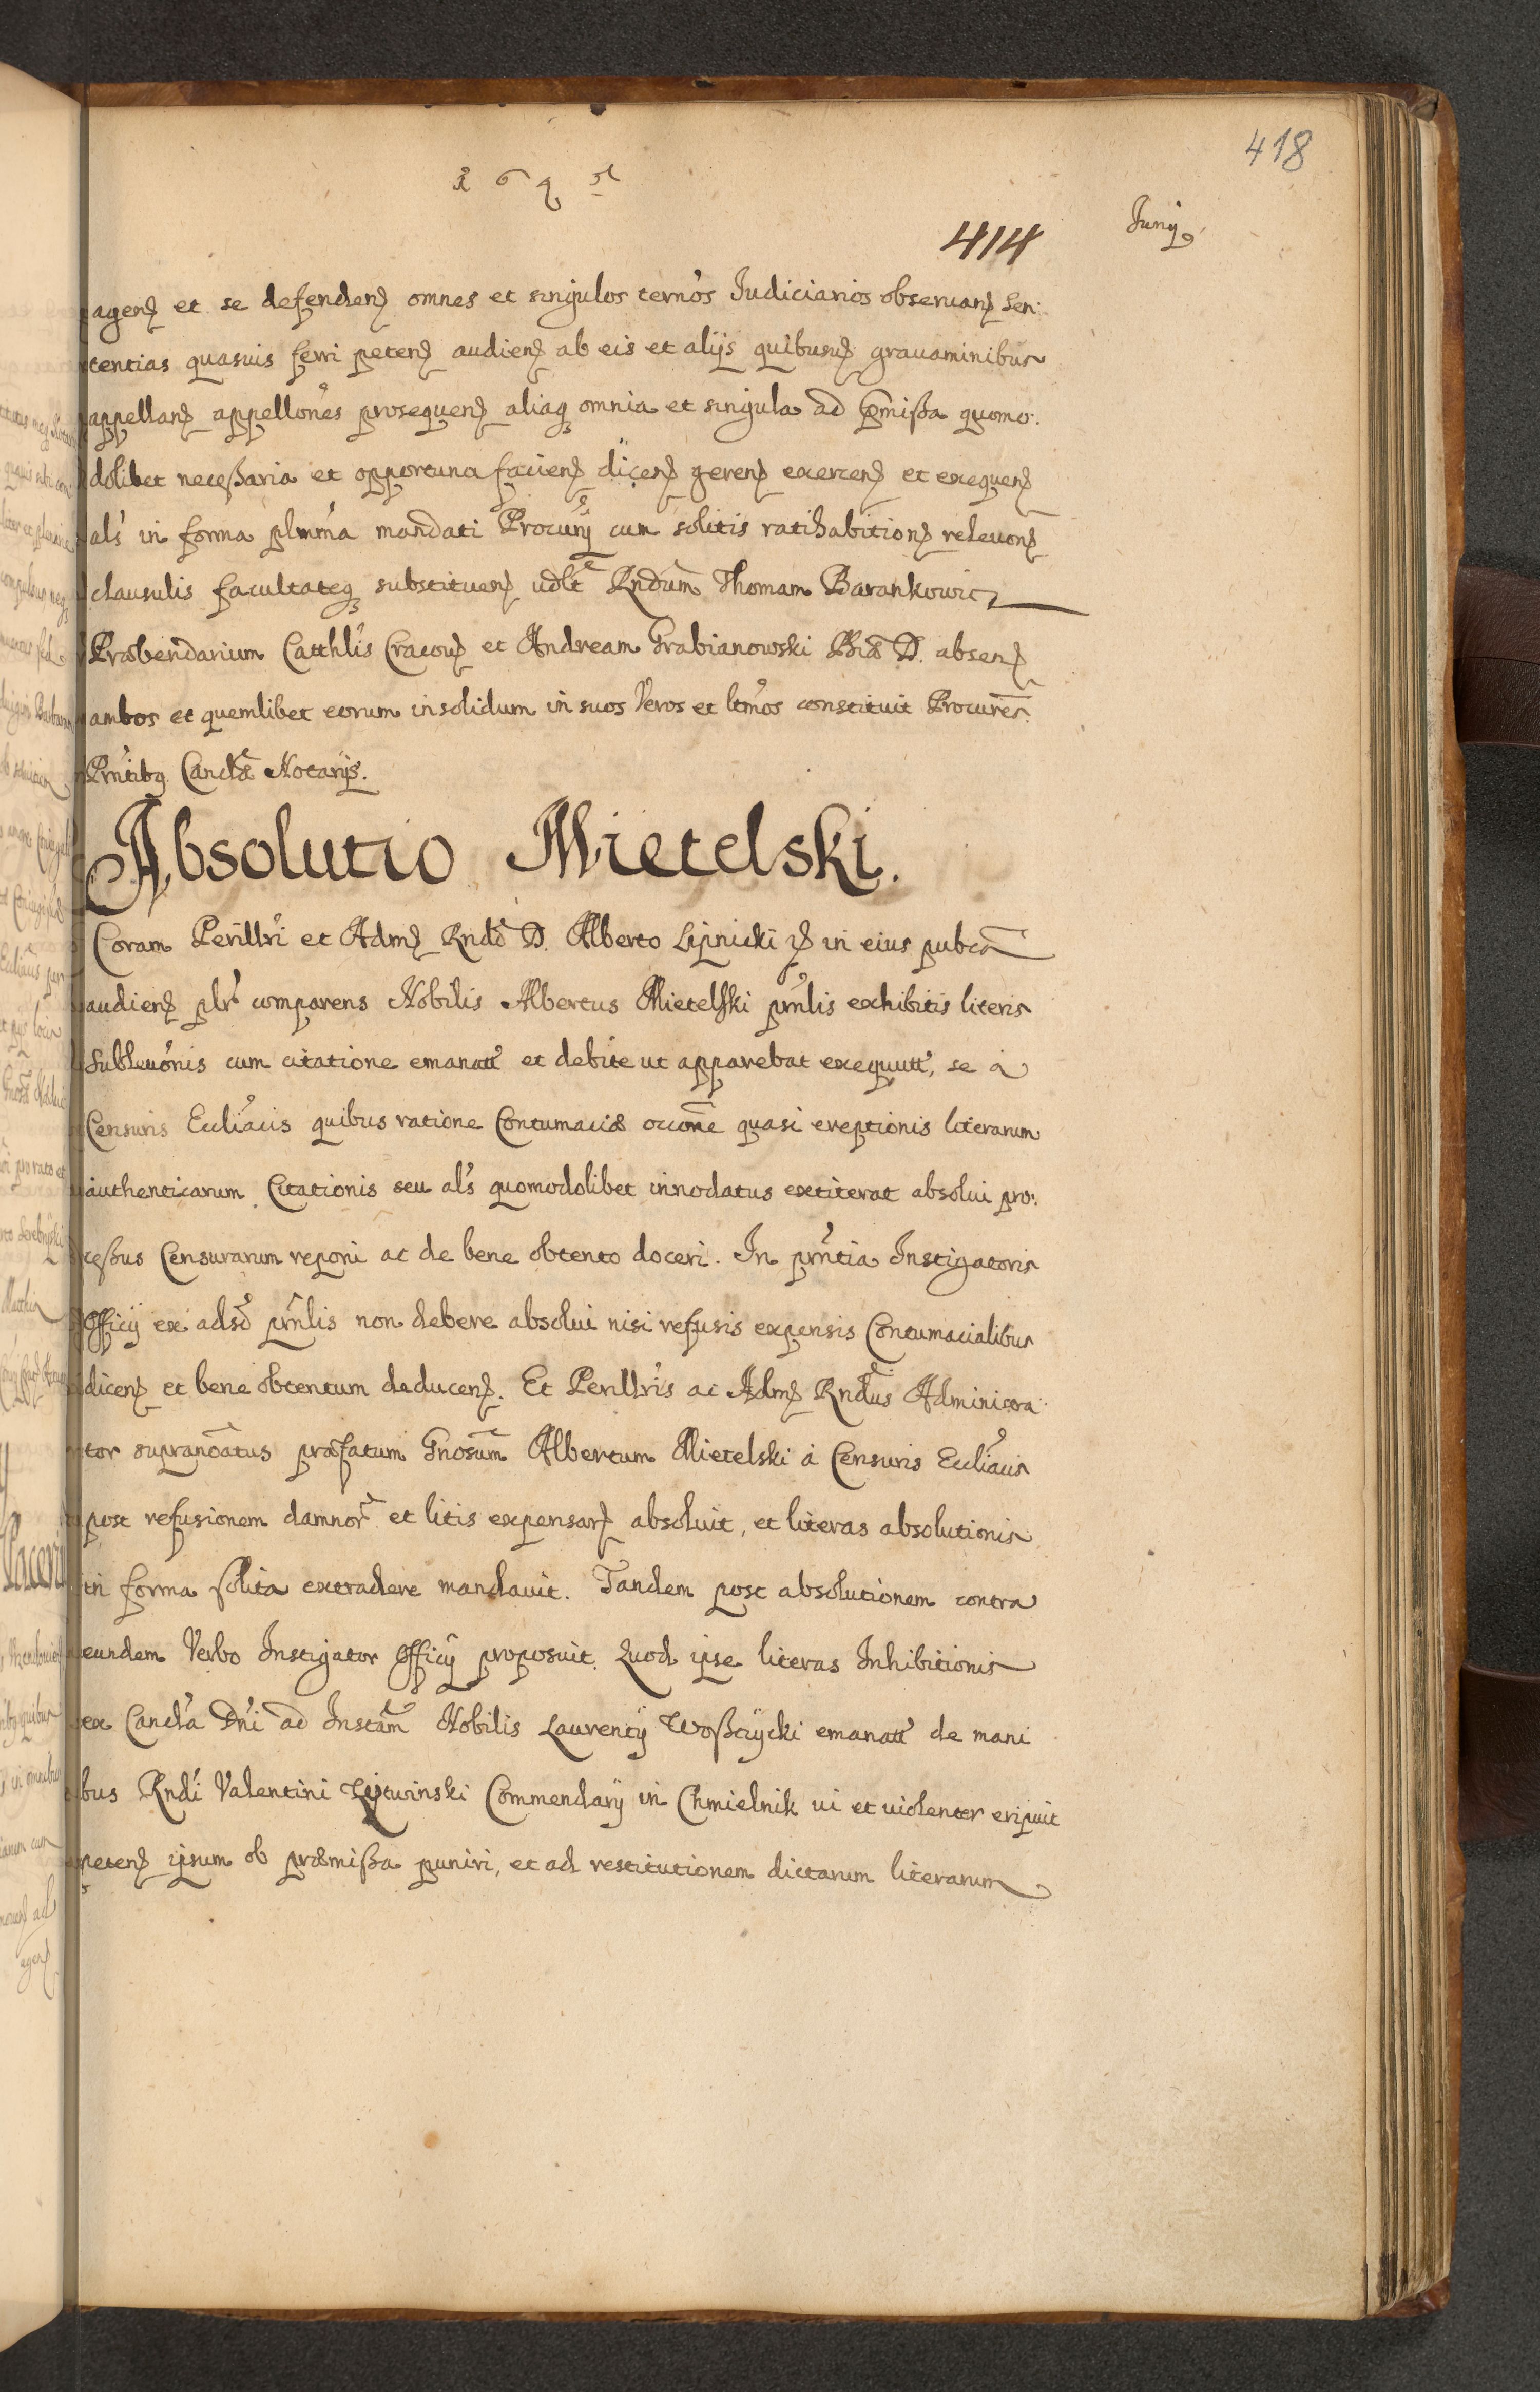 418
1645
414
Junij
agen. et se defenden. omnes et singulos termos Judiciarios obseruan. sen:
tentias quasuis ferri peten. audien. ab eis et alijs quibusuis grauaminibus
appellan. appellones prosequen. aliaq omnia et singula ad pmissa quomo:
dolibet necessaria et opportuna facien. dicen. geren. exercen. et exequen.
als in forma plmma mandati Procurij cum solitis ratihabition. releuon.
clausulis facultateq substituen. vdlt Rndum Thomam Barankowic
Præbendarium Catthlis Cracou. et Andream Grabianowski Phiæ D. absen.
ambos et quemlibet eorum insolidum in suos Veros et ltmos constituit Procures.
Pntibq. Canclæ Notarijs.
Absolutio Mietelski.
Coram Perillri et Adm. Rndo D. Alberto Lipnicki in eius pubca
audien. plr comparens Nobilis Albertus Mietelski prnlis exhibitis literis
subleuonis cum citatione emanatt et debite ut apparebat exequutt, se à
Censuris Eccliacis quibus ratione Contumaciæ occone quasi ereptionis literarum
authenticarum Citationis seu als quomodolibet innodatus extiterat absolui pro:
cessus Censurarum reponi ac de bene obtento doceri. In pntia Instigatoris
Officij ex adso prnlis non debere absolui nisi refusis expensis Contumacialibus
dicen. et bene obtentum deducen. Et Perillris ac Adm. Rndus Administra
tor supranoatus præfatum Gnosum Albertum Mietelski à Censuris Eccliacis
post refusionem damnor et litis expensar. absoluit, et literas absolutionis
in forma solita extradere mandauit. Tandem post absolutionem contra
eundem Verbo Instigator Officij proposuit. Quod ipse literas Inhibitionis
ex Cancla Dni ad Instam Nobilis Laurentij Woßczycki emanatt de mani
bus Rndi Valentini Zytwinski Commendarij in Chmielnik ui et uiolenter eripuit
peten. ipsum ob præmissa puniri, et ad restitutionem dictarum literarum